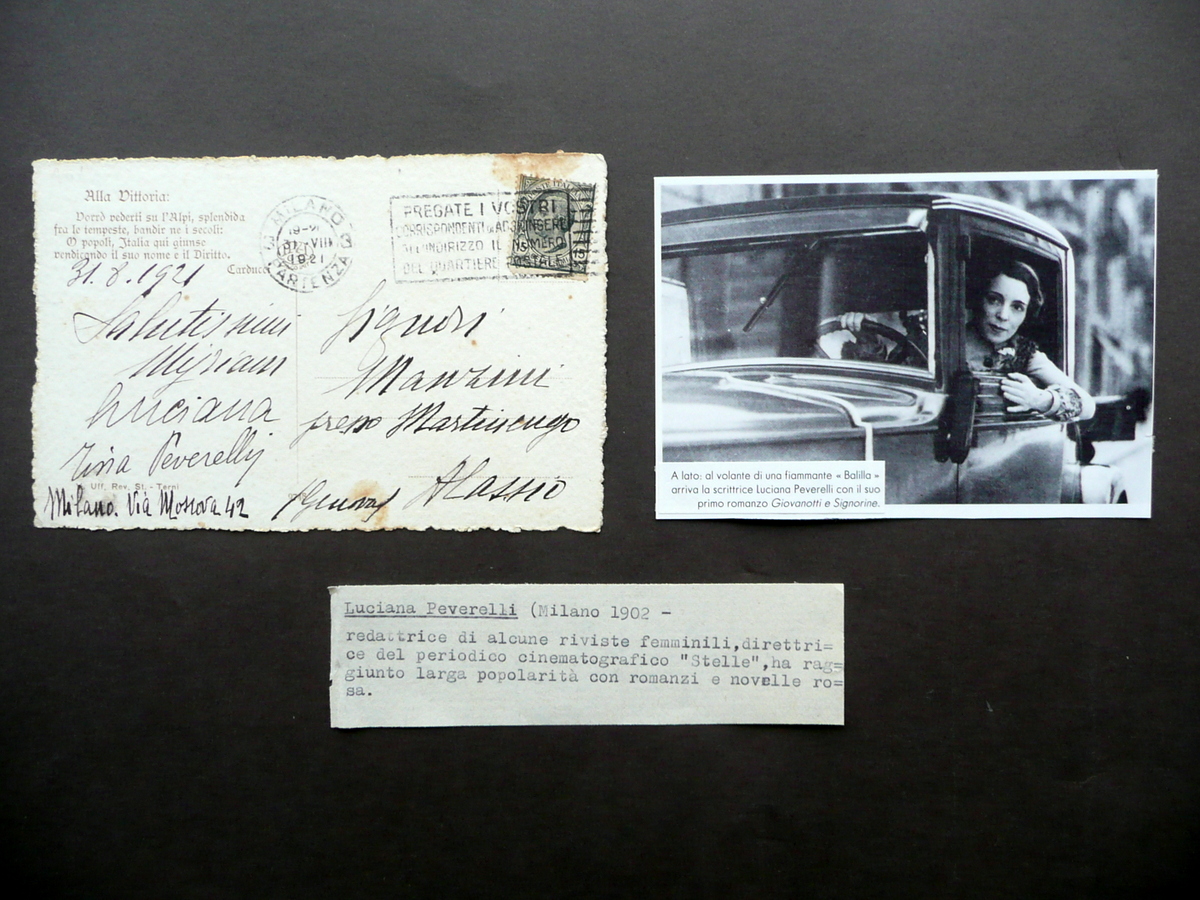 Alla Vittoria:
Vorrò vederti su l'Alpi, splendida
fra le tempeste, bandir ne i secoli:
O popoli, Italia qui giunse
vendicando il suo nome e il Diritto.
Carducci
31.8.1921
Salutissimi
Myriam
Luciana
Tina Peverelli
Uff. Rev. St. - Terni
Milano. Via Moscova 42
MILANO
19-
31 VIII
1921
PARTENZA
PREGATE I VOSTRI
CORRISPONDENTI DI AGGIUNGERE
ALL'INDIRIZZO IL NUMERO
DEL QUARTIERE POSTALE
Signori
Manzini
presso Martinengo
Alassio
(Genova)
A lato: al volante di una fiammante « Balilla »
arriva la scrittrice Luciana Peverelli con il suo
primo romanzo Giovanotti e Signorine.
Luciana Peverelli (Milano 1902 -
redattrice di alcune riviste femminili,direttri=
ce del periodico cinematografico "Stelle",ha rag=
giunto larga popolarità con romanzi e novelle ro=
sa.